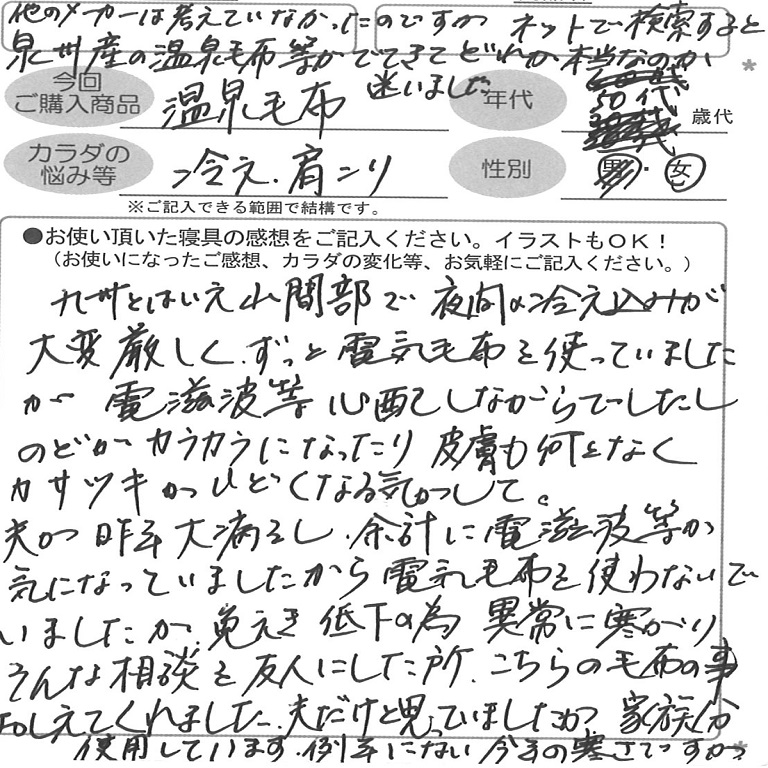 他のメーカーは考えていなかったのですが ネットで検索すると
泉州産の温泉毛布等がでてきてどれが本当なのか
迷いました
今回
ご購入商品
温泉毛布
年代
50代
歳代
カラダの
悩み等
冷え・肩こり
性別
男・女
※ご記入できる範囲で結構です。
●お使い頂いた寝具の感想をご記入ください。イラストもOK！
(お使いになったご感想、カラダの変化等、お気軽にご記入ください。)
九州とはいえ山間部で 夜間の冷え込みが
大変厳しく、ずっと電気毛布を使っていました
が 電滋波等 心配しながらでしたし
のどがカラカラになったり 皮膚も何となく
カサツキがひどくなる気がして。
夫が昨年大病をし、余計に電滋波等が
気になっていましたから電気毛布を使わないで
いましたが、免えき低下の為 異常に寒がり
そんな相談を友人にした所、こちらの毛布の事
おしえてくれました、夫だけと思っていましたが 家族分
使用しています、例年にない今年の寒さですが